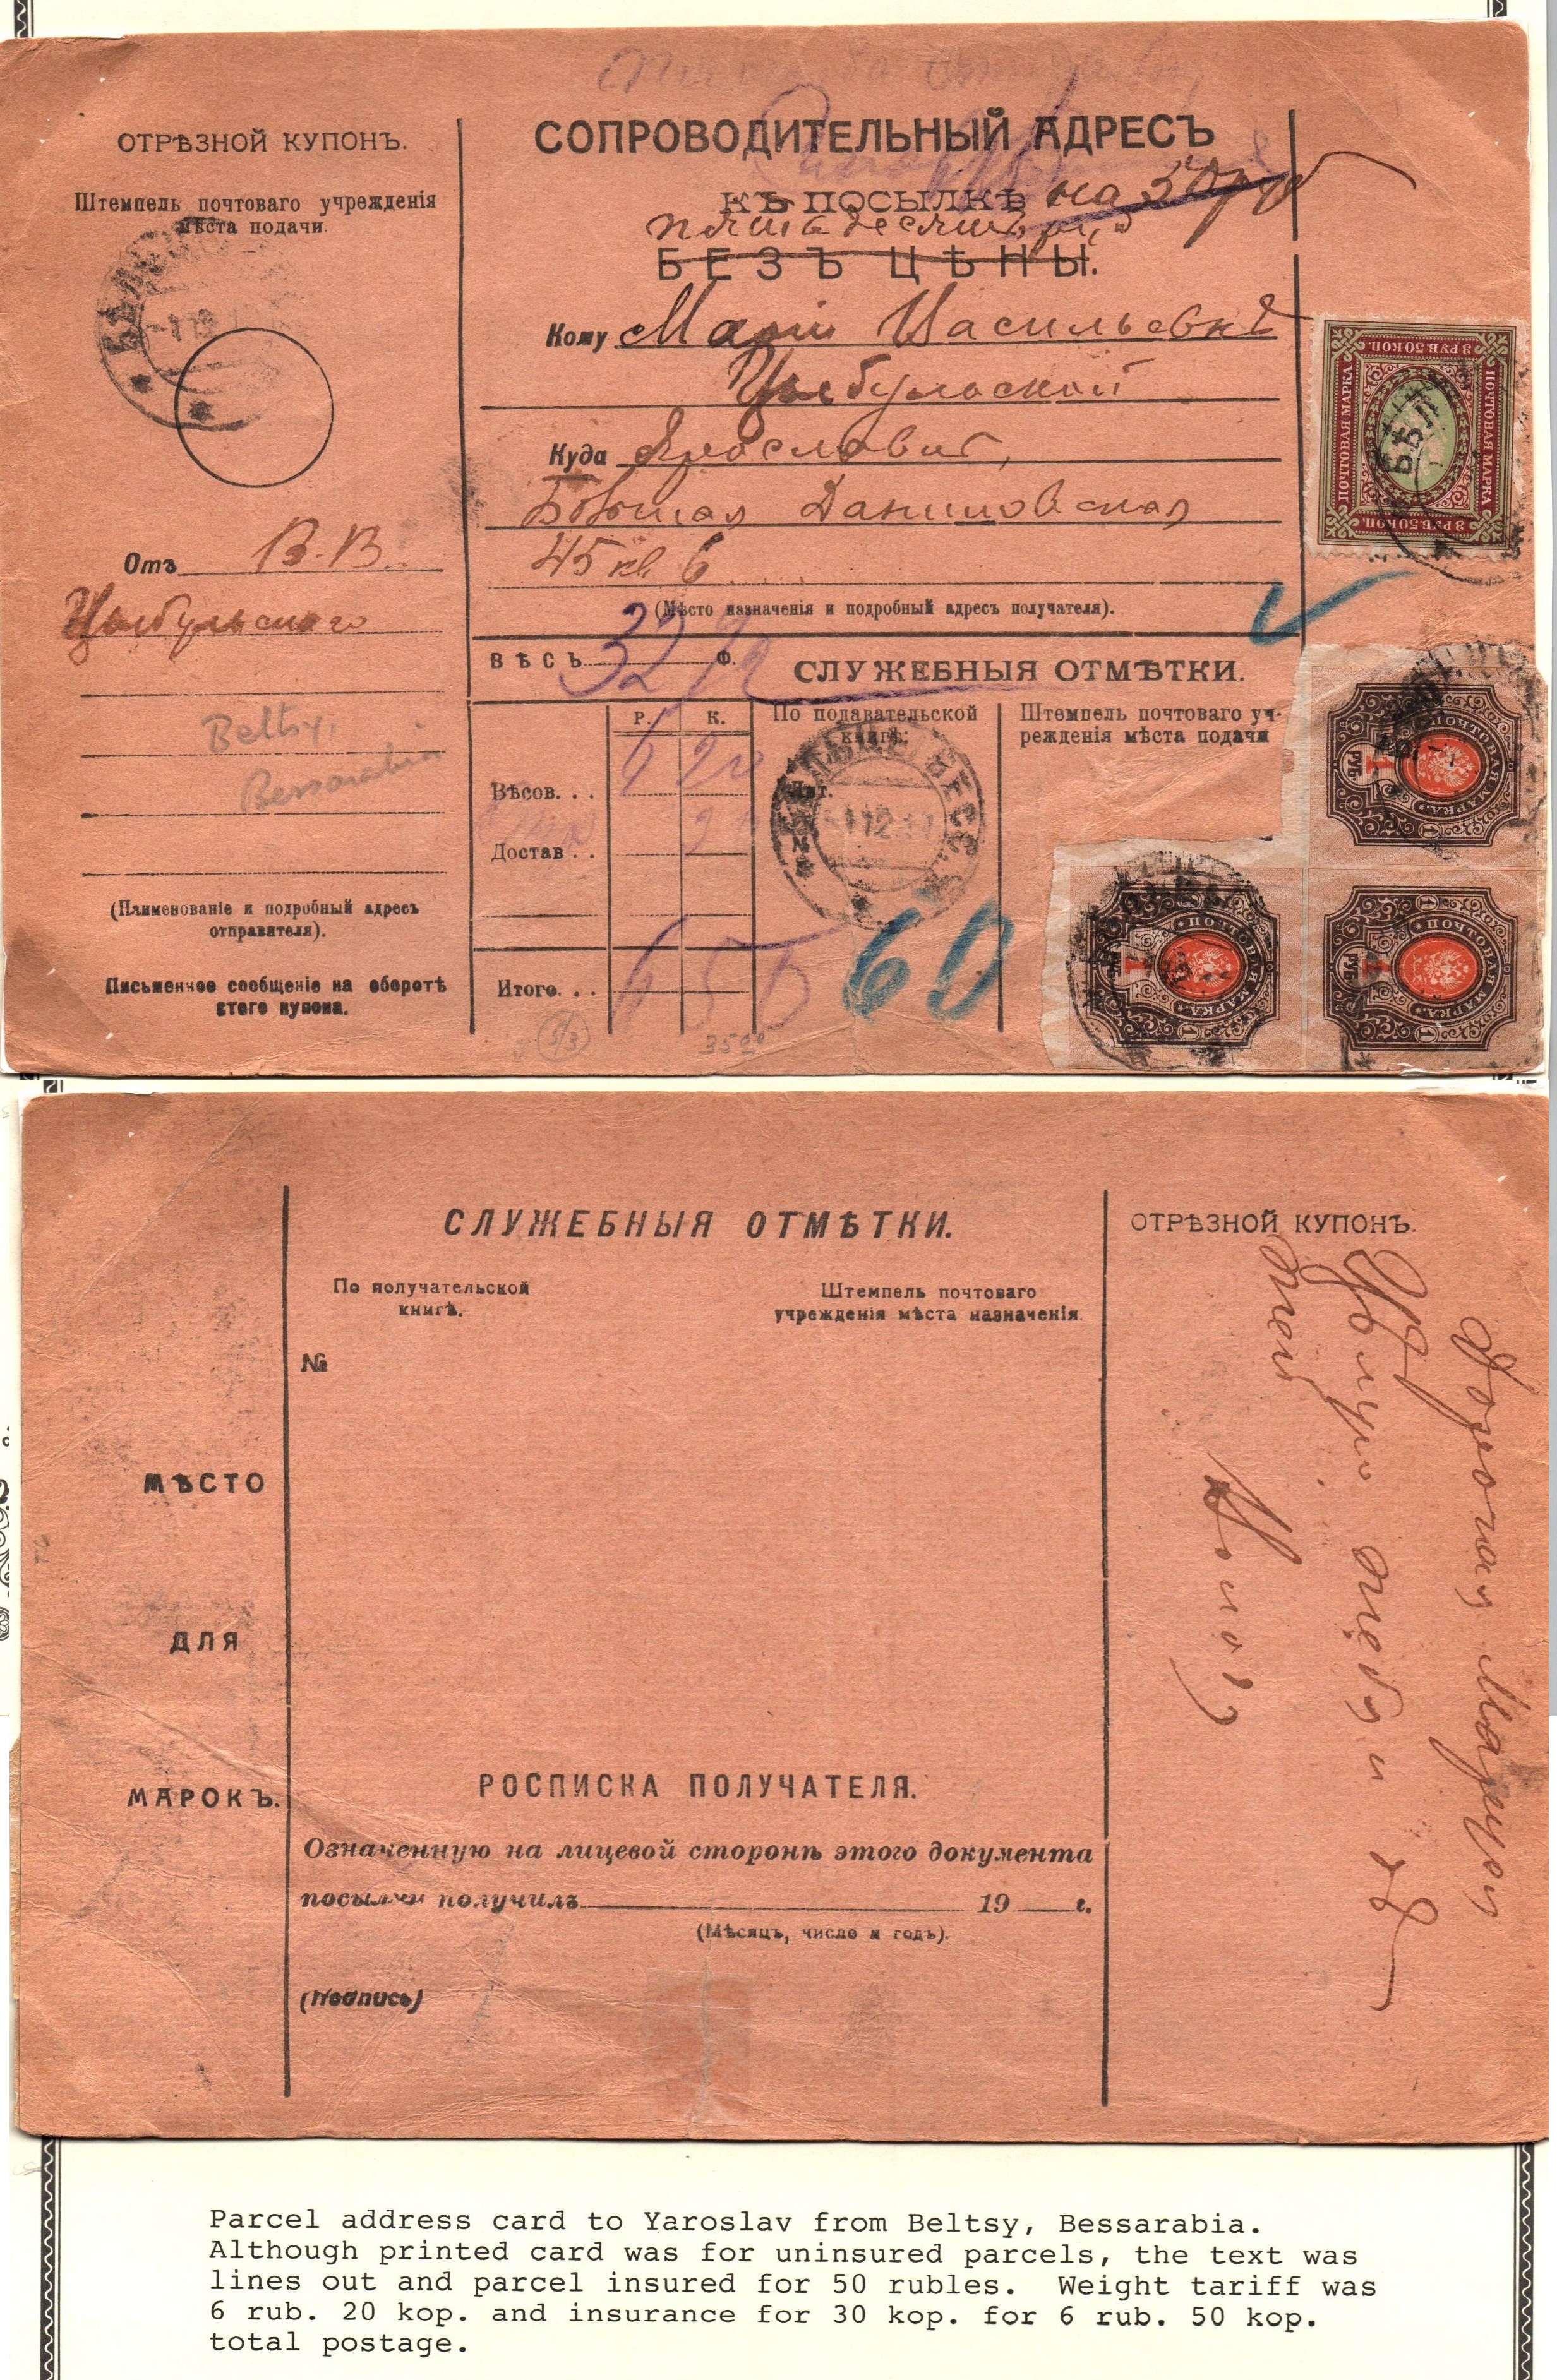 ОТРѢЗНОЙ КУПОНЪ.
Штемпель почтоваго учрежденія
мѣста подачи.
Отъ В.В.
Цыбульского
Beltsy,
Bessarabia
(Наименованіе и подробный адресъ
отправителя).
Письменное сообщеніе на оборотѣ
этого купона.
СОПРОВОДИТЕЛЬНЫЙ АДРЕСЪ
КЪ ПОСЫЛКѢ на 50 руб
пятьдесятъ р.
БЕЗЪ ЦѢНЫ.
Кому Маріи Васильевнѣ
Цыбульской
Куда Ярославль,
Большая Даниловская
45 кв 6
(Мѣсто назначенія и подробный адресъ получателя).
ВѢСЪ 32 Ф.
СЛУЖЕБНЫЯ ОТМѢТКИ.
Р. К.
Вѣсов. . . 6 20
Достав . .
Итого. . . 6 50
По подавательской
книгѣ:
Лит.
№
60
Штемпель почтоваго уч-
режденія мѣста подачи
5/3
3500
ПОЧТОВАЯ МАРКА
3 РУБ. 50 КОП.
3 РУБ. 50 КОП.
ПОЧТОВАЯ МАРКА
ПОЧТОВАЯ МАРКА
1 РУБ.
ПОЧТОВАЯ МАРКА
1 РУБ.
ПОЧТОВАЯ МАРКА
1 РУБ.
СЛУЖЕБНЫЯ ОТМѢТКИ.
По получательской
книгѣ.
Штемпель почтоваго
учрежденія мѣста назначенія
№
МѢСТО
ДЛЯ
МАРОКЪ.
РОСПИСКА ПОЛУЧАТЕЛЯ.
Означенную на лицевой сторонѣ этого документа
посылку получилъ 19 г.
(Мѣсяцъ, число и годъ).
(Подпись)
ОТРѢЗНОЙ КУПОНЪ.
Дорогая Маруся
Цѣлую тебя и
дѣтей
Parcel address card to Yaroslav from Beltsy, Bessarabia.
Although printed card was for uninsured parcels, the text was
lines out and parcel insured for 50 rubles. Weight tariff was
6 rub. 20 kop. and insurance for 30 kop. for 6 rub. 50 kop.
total postage.